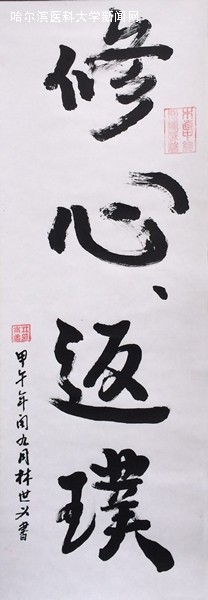 哈尔滨医科大学新闻网
修心、返璞
甲午年闰九月林世义書